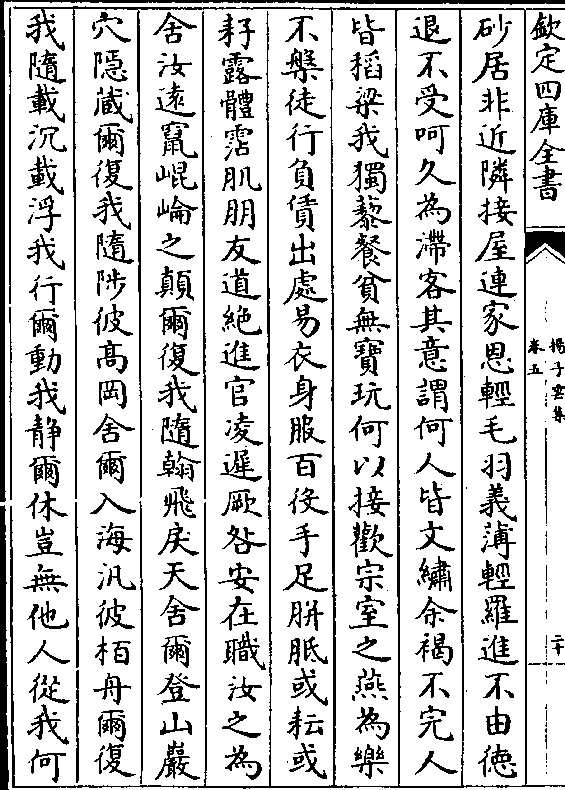 欽定四庫全書
揚子雲集
卷五
二十
砂居非近隣接屋連家恩輕毛羽義薄輕羅進不由徳
退不受呵久為滯客其意謂何人皆文繡余褐不完人
皆稻粱我獨藜餐貧無寶玩何以接歡宗室之燕為樂
不槃徒行負賃出處易衣身服百役手足胼胝或耘或
耔露體霑肌朋友道絶進官凌遲厥咎安在職汝之為
舍汝逺竄崐崘之顛爾復我隨翰飛戾天舍爾登山巖
穴隠蔵爾復我隨陟彼髙岡舍爾入海汎彼栢舟爾復
我隨載沉載浮我行爾動我静爾休豈無他人從我何